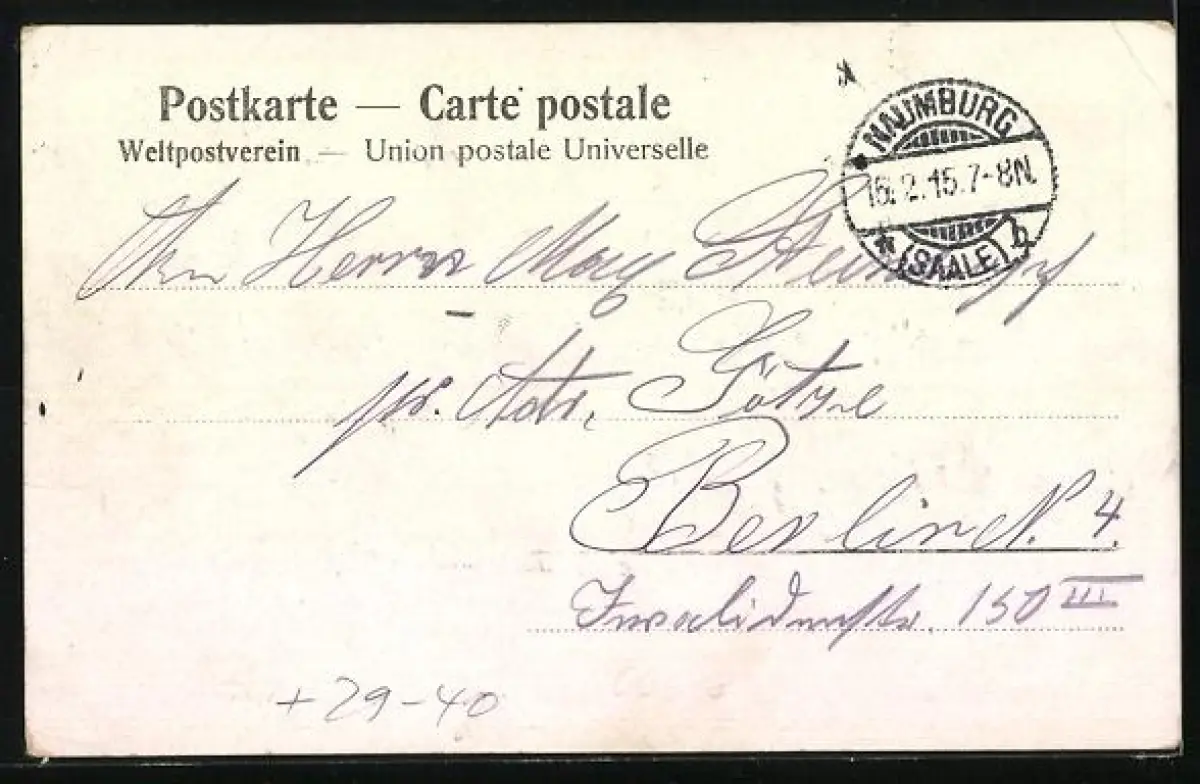 Postkarte — Carte postale
Weltpostverein — Union postale Universelle
NAUMBURG
15.2.15.7-8N.
* (SAALE) b
An Herrn Max
pr. Adr. Götze
Berlin N. 4.
Invalidenstr. 150 III
+ 29-40